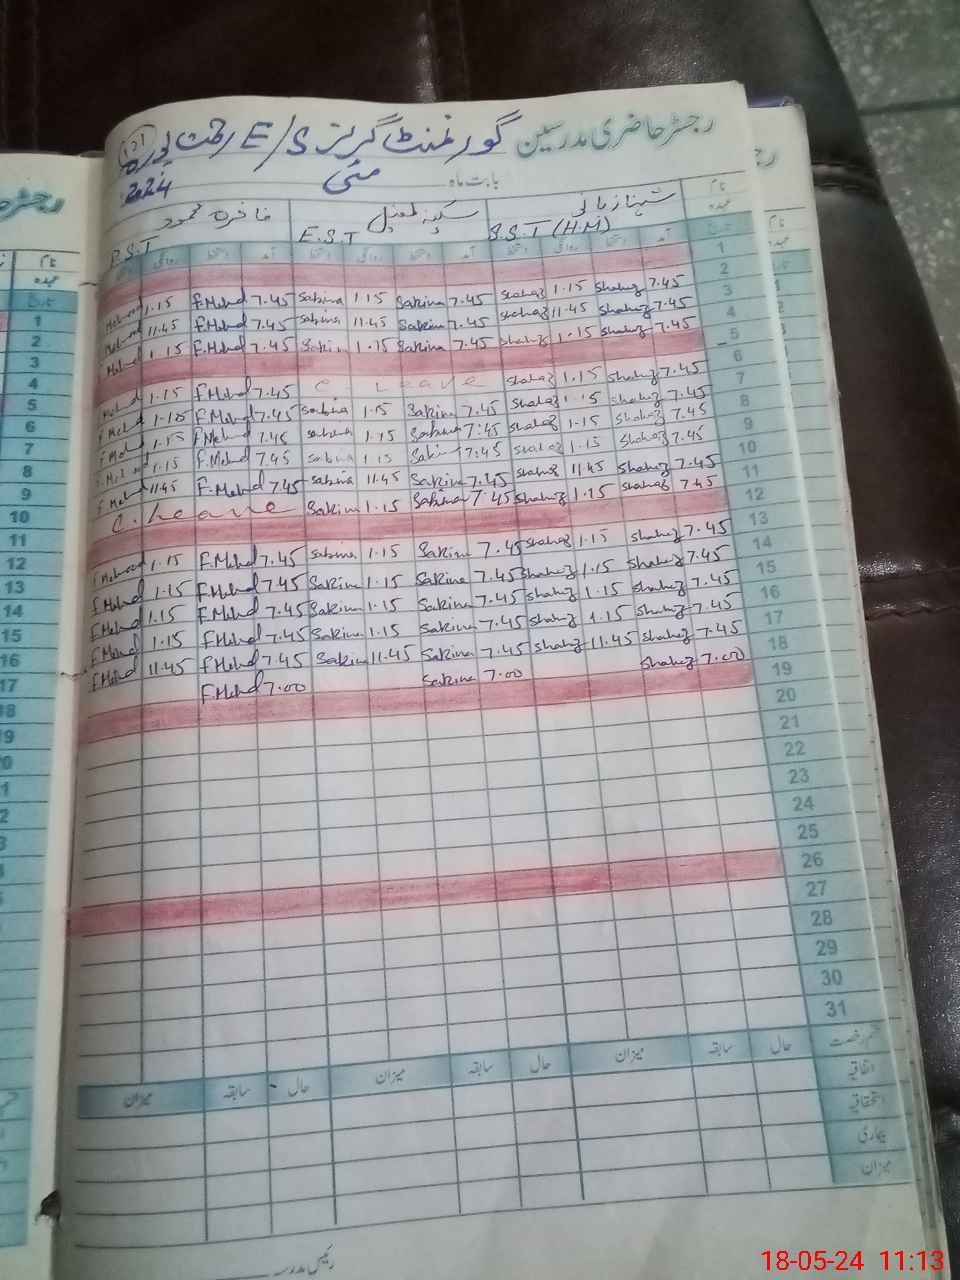 رجسٹر حاضری مدرسین گورنمنٹ گرلز E/S رحمت پورہ
بابت ماہ مئی 2024
نام شہناز مالی سکینہ طفیل فاخرہ محمود
عہدہ S.S.T (H.M) E.S.T P.S.T
تاریخ آمد دستخط روانگی دستخط آمد دستخط روانگی دستخط آمد دستخط روانگی
1
2 7.45 Shahnaz 1.15 Shahnaz 7.45 Sakina 1.15 Sakina 7.45 F.Mehmd 1.15
3 7.45 Shahnaz 11.45 Shahnaz 7.45 Sakina 11.45 Sakina 7.45 F.Mehmd 11.45
4 7.45 Shahnaz 1.15 Shahnaz 7.45 Sakina 1.15 Sakina 7.45 F.Mehmd 1.15
5
6 7.45 Shahnaz 1.15 Shahnaz C. Leave 7.45 F.Mehmd 1.15
7 7.45 Shahnaz 1.15 Shahnaz 7.45 Sakina 1.15 Sakina 7.45 F.Mehmd 1.15
8 7.45 Shahnaz 1.15 Shahnaz 7:45 Sakina 1.15 Sakina 7.45 F.Mehmd 1.15
9 7.45 Shahnaz 1.15 Shahnaz 7:45 Sakina 1.15 Sakina 7.45 F.Mehmd 1.15
10 7.45 Shahnaz 11.45 Shahnaz 7.45 Sakina 11.45 Sakina 7.45 F.Mehmd 11.45
11 7.45 Shahnaz 1.15 Shahnaz 7.45 Sakina 1.15 Sakina C. Leave
12
13 7.45 Shahnaz 1.15 Shahnaz 7.45 Sakina 1.15 Sakina 7.45 F.Mehmd 1.15
14 7.45 Shahnaz 1.15 Shahnaz 7.45 Sakina 1.15 Sakina 7.45 F.Mehmd 1.15
15 7.45 Shahnaz 1.15 Shahnaz 7.45 Sakina 1.15 Sakina 7.45 F.Mehmd 1.15
16 7.45 Shahnaz 1.15 Shahnaz 7.45 Sakina 1.15 Sakina 7.45 F.Mehmd 1.15
17 7.45 Shahnaz 11.45 Shahnaz 7.45 Sakina 11.45 Sakina 7.45 F.Mehmd 11.45
18 7.00 Shahnaz 7.00 Sakina 7.00 F.Mehmd
19
20
21
22
23
24
25
26
27
28
29
30
31
حال سابقہ میزان حال سابقہ میزان حال سابقہ میزان
اتفاقیہ
استحقاقیہ
بیماری
میزان
رئیس مدرسہ
18-05-24 11:13